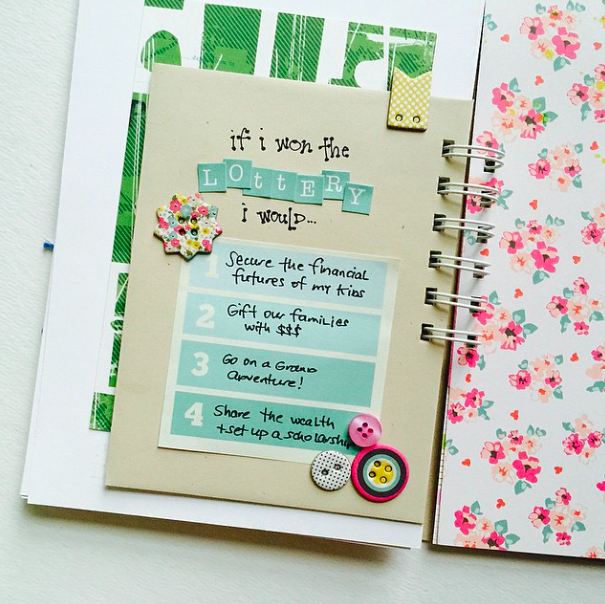 if i won the
LOttERY
i wouLD...
1 Secure the financial
futures of my kids
2 Gift our families
with $$$
3 Go on a Grand
adventure!
4 Share the wealth
+set up a scholarship